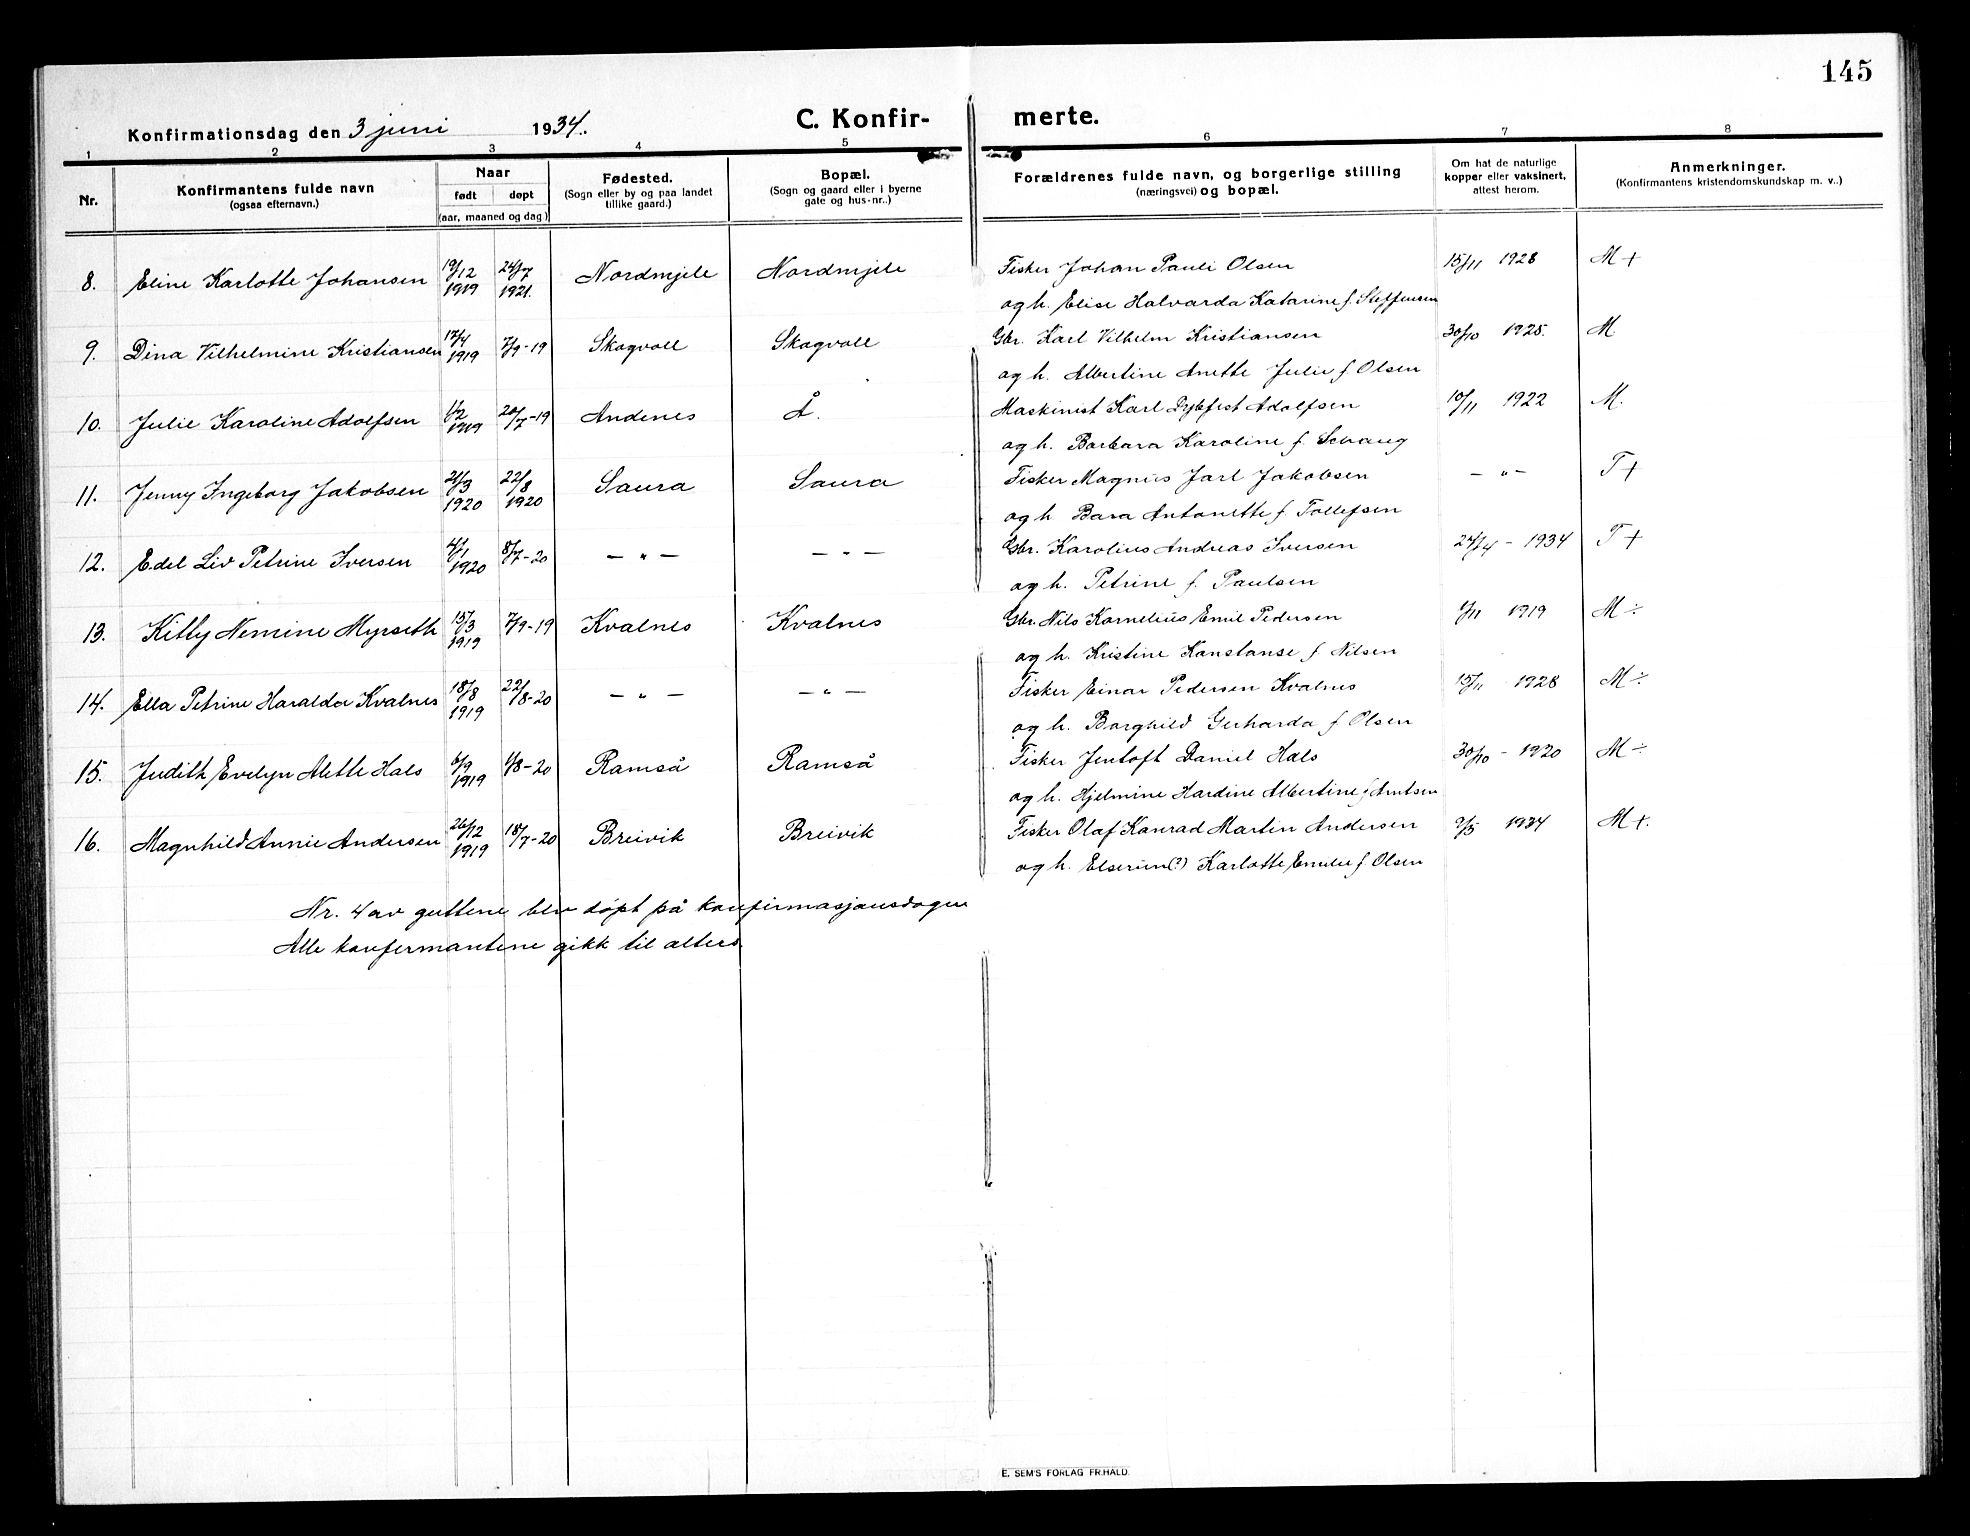 145
Konfirmationsdag den 3 juni 1934. C. Konfirmerte.
1 2 3 4 5 6 7 8
Nr. Konfirmantens fulde navn (ogsaa efternavn.) Naar født døpt (aar, maaned og dag) Fødested. (Sogn eller by og paa landet tillike gaard.) Bopæl. (Sogn og gaard eller i byerne gate og hus-nr.) Forældrenes fulde navn, og borgerlige stilling (næringsvei) og bopæl. Om hat de naturlige kopper eller vaksinert, attest herom. Anmerkninger. (Konfirmantens kristendomskundskap m. v..)
8. Eline Karlotte Johansen 19/12 1919 24/7 1921. Nordmjele Nordmjele Fisker Johan Pauli Olsen 15/11 1928 M +
og h. Elise Halvarda Katarine f. Steffensen
9. Dina Vilhelmine Kristiansen 17/4 1919 7/9-19 Skogvoll Skogvoll Gbr. Karl Vilhelm Kristiansen 30/10 1925. M
og h. Albertine Anette Julie f. Olsen
10. Julie Karoline Adolfsen 1/2 1919 20/7-19 Andenes Å. Maskinist Karl Dybfest Adolfsen 10/11 1922 M.
og h. Barbara Karoline f. Schaug
11. Jenny Ingeborg Jakobsen 21/3 1920 22/8 1920 Saura Saura Fisker Magnus Jarl Jakobsen – " – T +
og h. Bara Antonette f. Tollefsen
12. Edel Liv Petrine Iversen 4/1 1920 8/7-20 – " – – " – Gbr. Karolius Andreas Iversen 24/4 - 1934 T +
og h. Petrine f. Paulsen
13. Kitty Nemine Myrseth 15/3 1919 7/9-19 Kvalnes Kvalnes Gbr. Nils Kornelius Emil Pedersen 1/11 1919 M ÷
og h. Kristine Konstanse f. Nilsen
14. Ella Petrine Haralda Kvalnes 18/8 1919 22/8-20 – " – – " – Fisker Einar Pedersen Kvalnes 15/11 1928 M ÷
og h. Borghild Gerharda f. Olsen
15. Judith Evelyn Alette Hals 6/9 1919 1/8-20 Ramså Ramså Fisker Jentoft Daniel Hals 30/10 - 1920 M ÷
og h. Hjelmine Hardine Albertine f. Arntsen
16. Magnhild Annie Andersen 26/12 1919 18/7-20 Breivik Breivik Fisker Olaf Konrad Martin Andersen 9/5 1934 M +.
og h. Elserine(?) Karlotte Emilie f. Olsen
Nr. 4 av guttene blev døpt på konfirmasjonsdagen
Alle konfermantene gikk til alters.
E. SEM'S FORLAG FR.HALD.